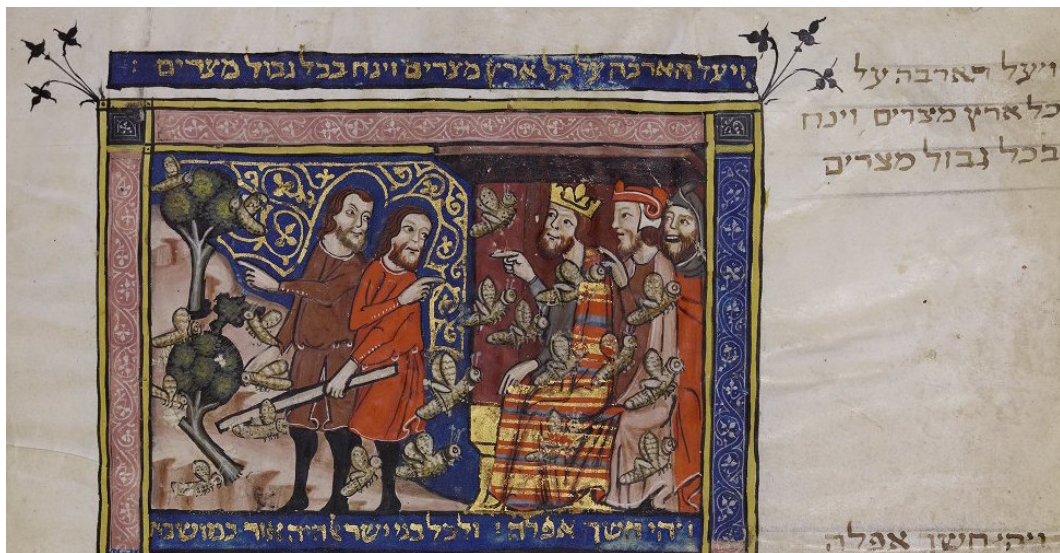 ויעל הארבה על כל ארץ מצרים וינח בכל גבול מצרים :
ויעל הארבה על
כל ארץ מצרים וינח
בכל גבול מצרים
ויהי חשך אפלה : ולכל בני ישראל היה אור במושבת
ויהי חשך אפלה